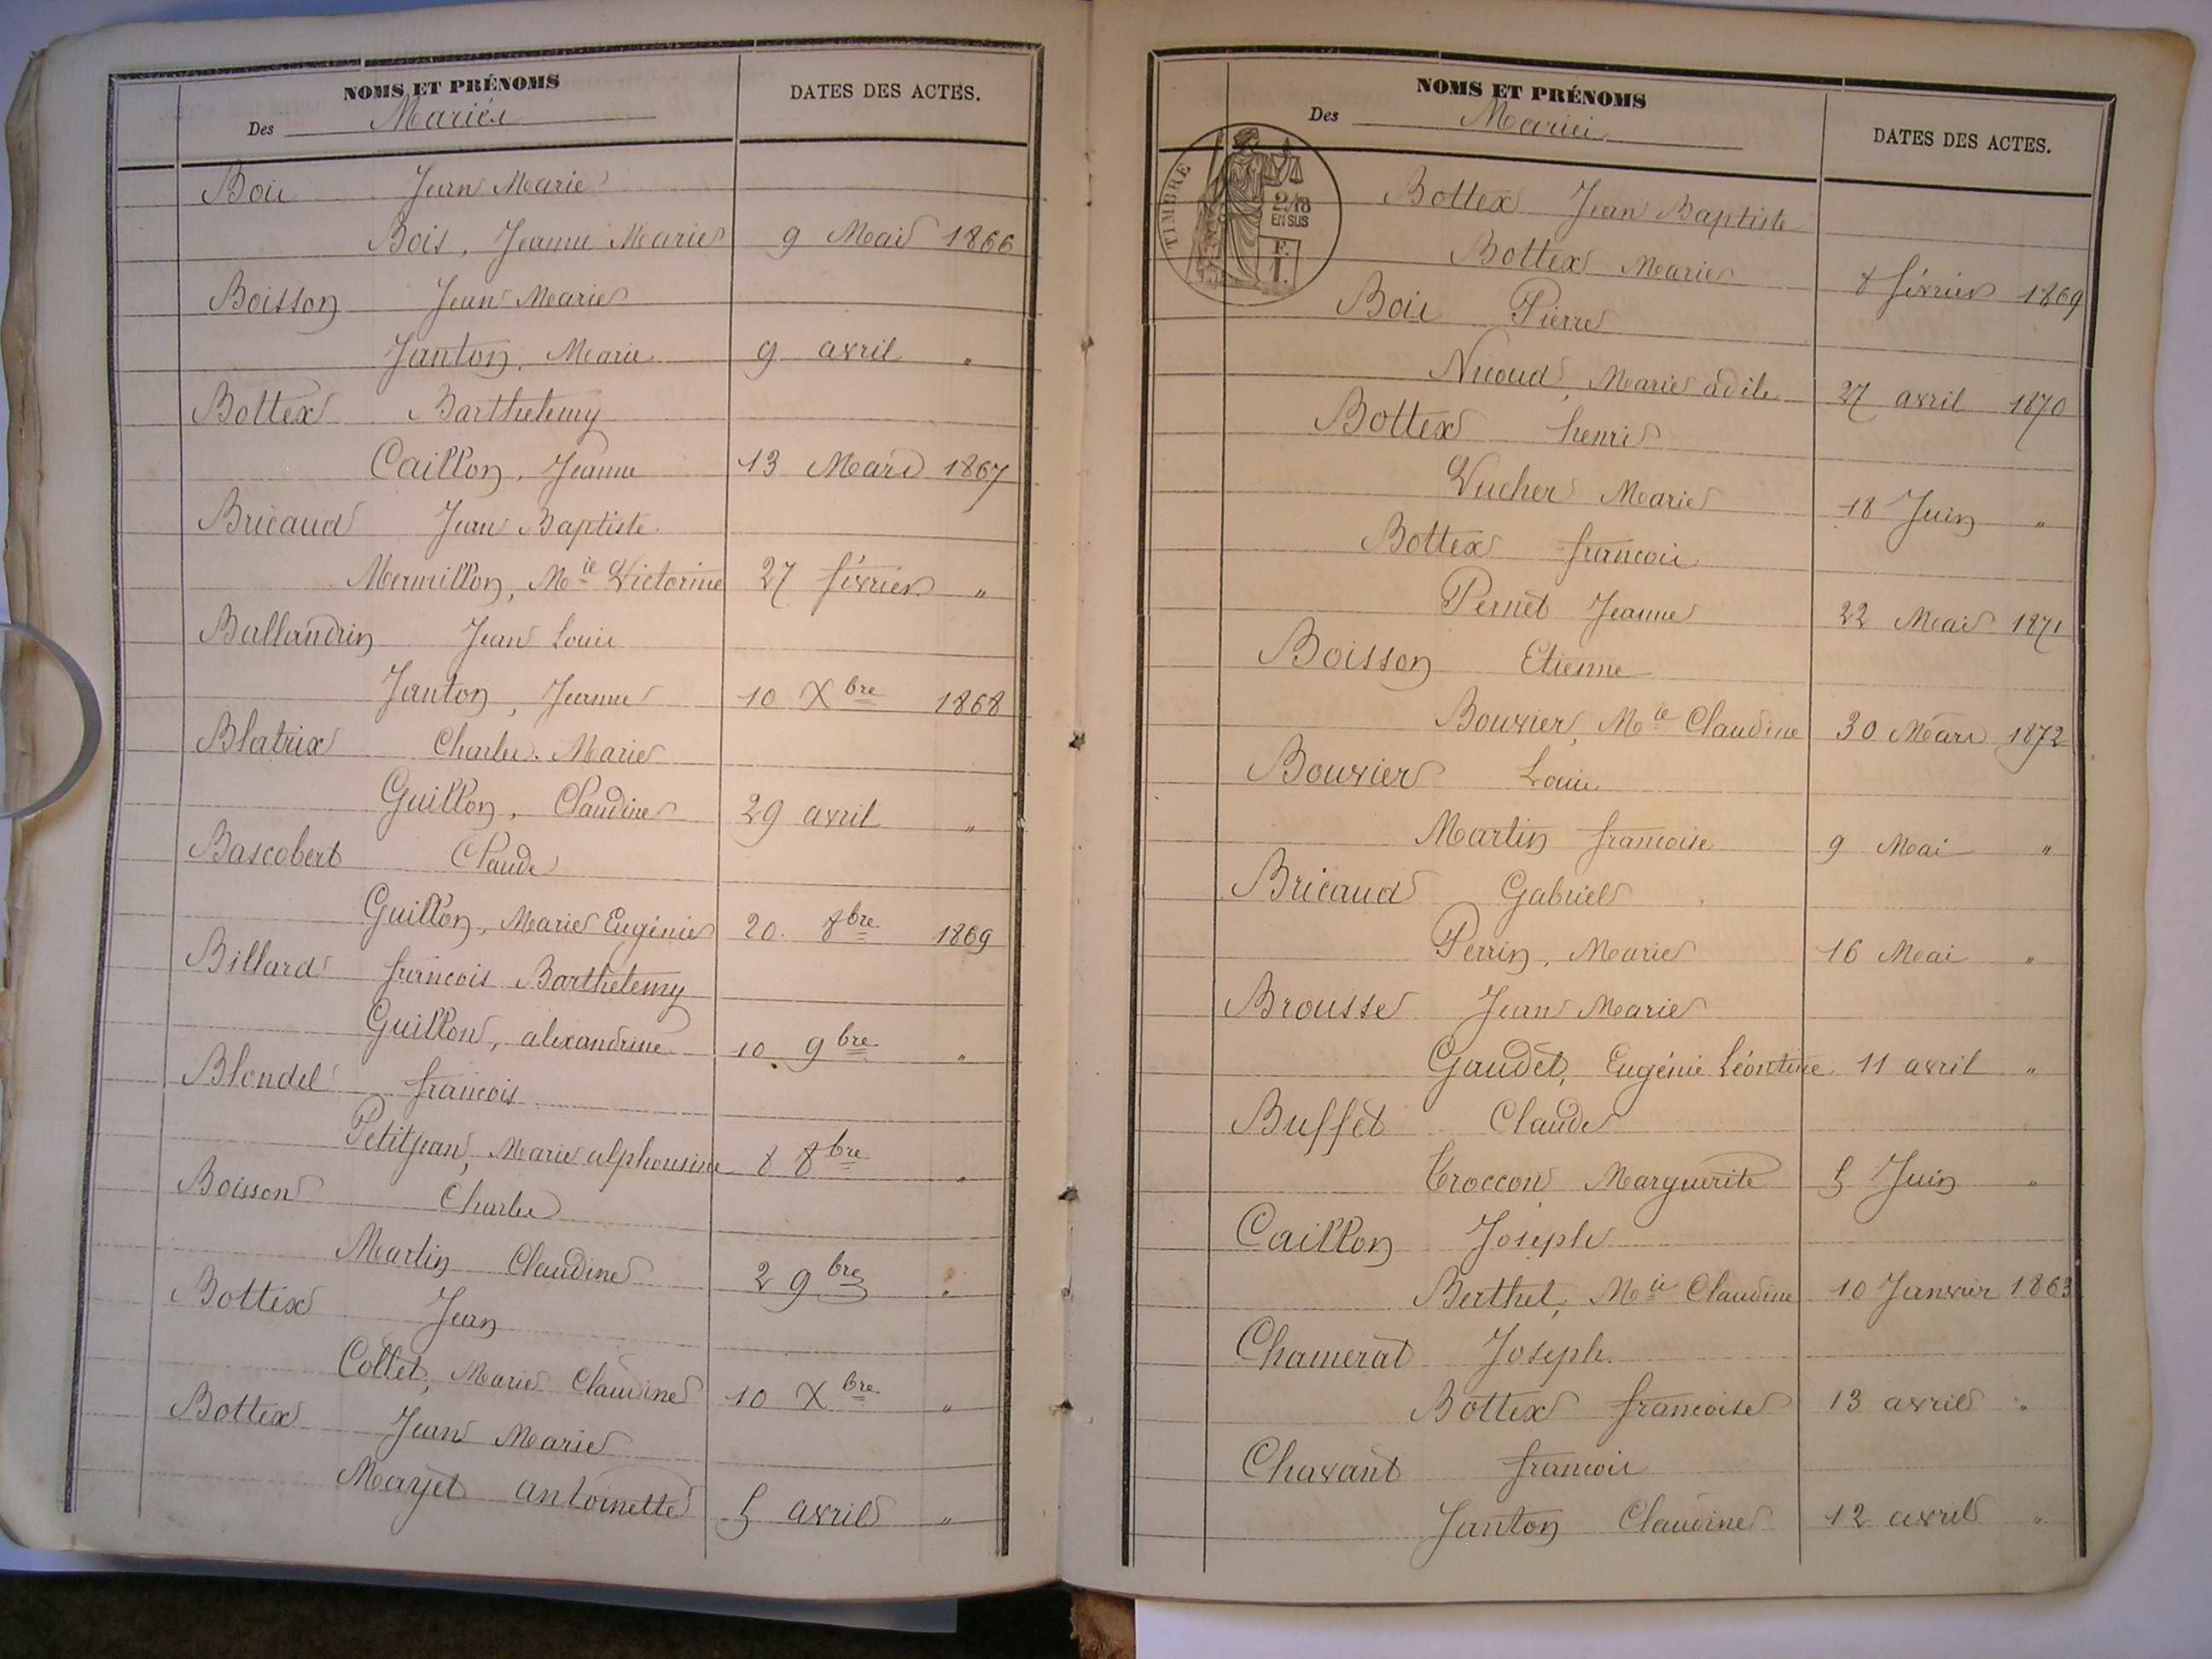 NOMS ET PRÉNOMS
Des Mariés
DATES DES ACTES.
Bois Jean Marie
Bois, Jeanne Marie 9 Mai 1866
Boisson Jean Marie
Janton, Marie 9 avril "
Bottex Barthelemy
Caillon, Jeanne 13 Mars 1867
Bricaud Jean Baptiste
Mermillon, Mie Victorine 27 février "
Ballandrin Jean Louis
Janton, Jeanne 10 Xbre 1868
Blatrix Charles Marie
Guillon, Claudine 29 avril "
Bascobert Claude
Guillon, Marie Eugénie 20 8bre 1869
Billard francois Barthelemy
Guillon, alexandrine 10 9bre "
Blondel francois
Petitjean, Marie alphonsine 8 8bre "
Boisson Charles
Martin Claudine 2 9bre "
Bottex Jean
Collet, Marie Claudine 10 Xbre "
Bottex Jean Marie
Mayet antoinette 5 avril "
NOMS ET PRÉNOMS
Des Mariés
DATES DES ACTES.
TIMBRE
2/10
EN SUS
F.
1.
Bottex Jean Baptiste
Bottex Marie 8 février 1869
Bois Pierre
Nicoud, Marie adile 27 avril 1870
Bottex henri
Vucher Marie 18 Juin "
Bottex francois
Pernet Jeanne 22 Mai 1871
Boisson Etienne
Bouvier, Mie Claudine 30 Mars 1872
Bouvier Louis
Martin francoise 9 Mai "
Bricaud Gabriel
Perrin, Marie 16 Mai "
Brousse Jean Marie
Gaudet, Eugénie Léontine 11 avril "
Buffet Claude
Troccon Marguerite 5 Juin "
Caillon Joseph
Berthet, Mie Claudine 10 Janvier 1863
Chamerat Joseph
Bottex francoise 13 avril "
Chavant francois
Janton Claudine 12 avril "